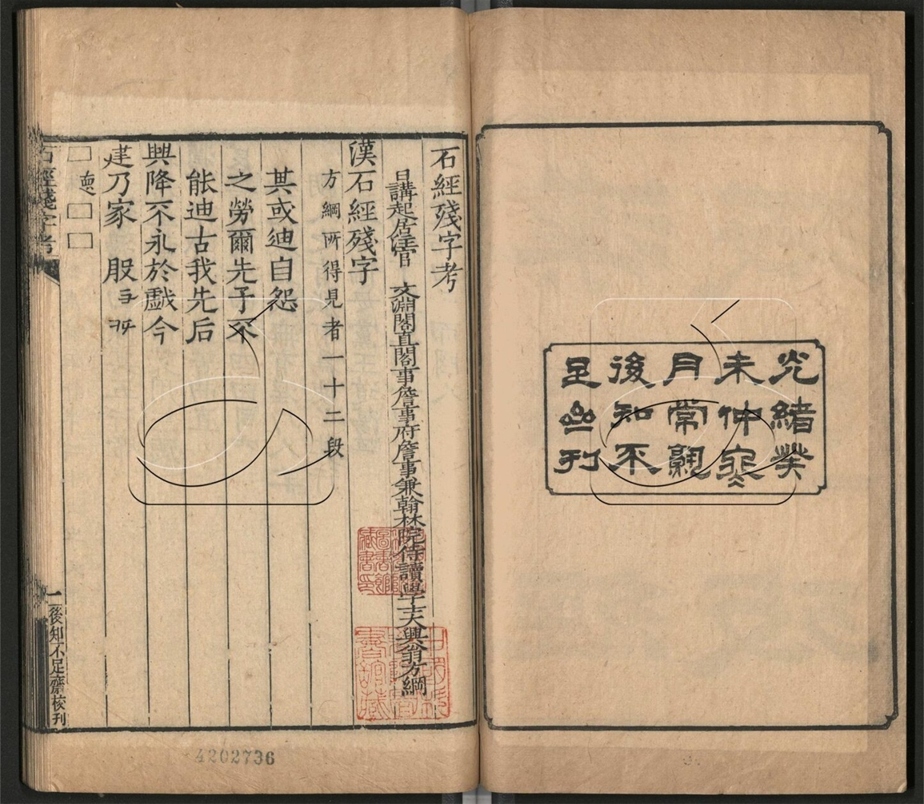 光緒癸
未仲冬
月常熟
後知不
足亝刊
石經殘字考
日講起居注官 文淵閣直閣事詹事府詹事兼翰林院侍讀學士大興翁方綱
漢石經殘字
方綱所得見者一十二段
其或迪自怨
之勞爾先予丕
能迪古我先后
興降不永於戲今
建乃家
□ □□
石經殘字考
一
後知不足齋校刊
4202736